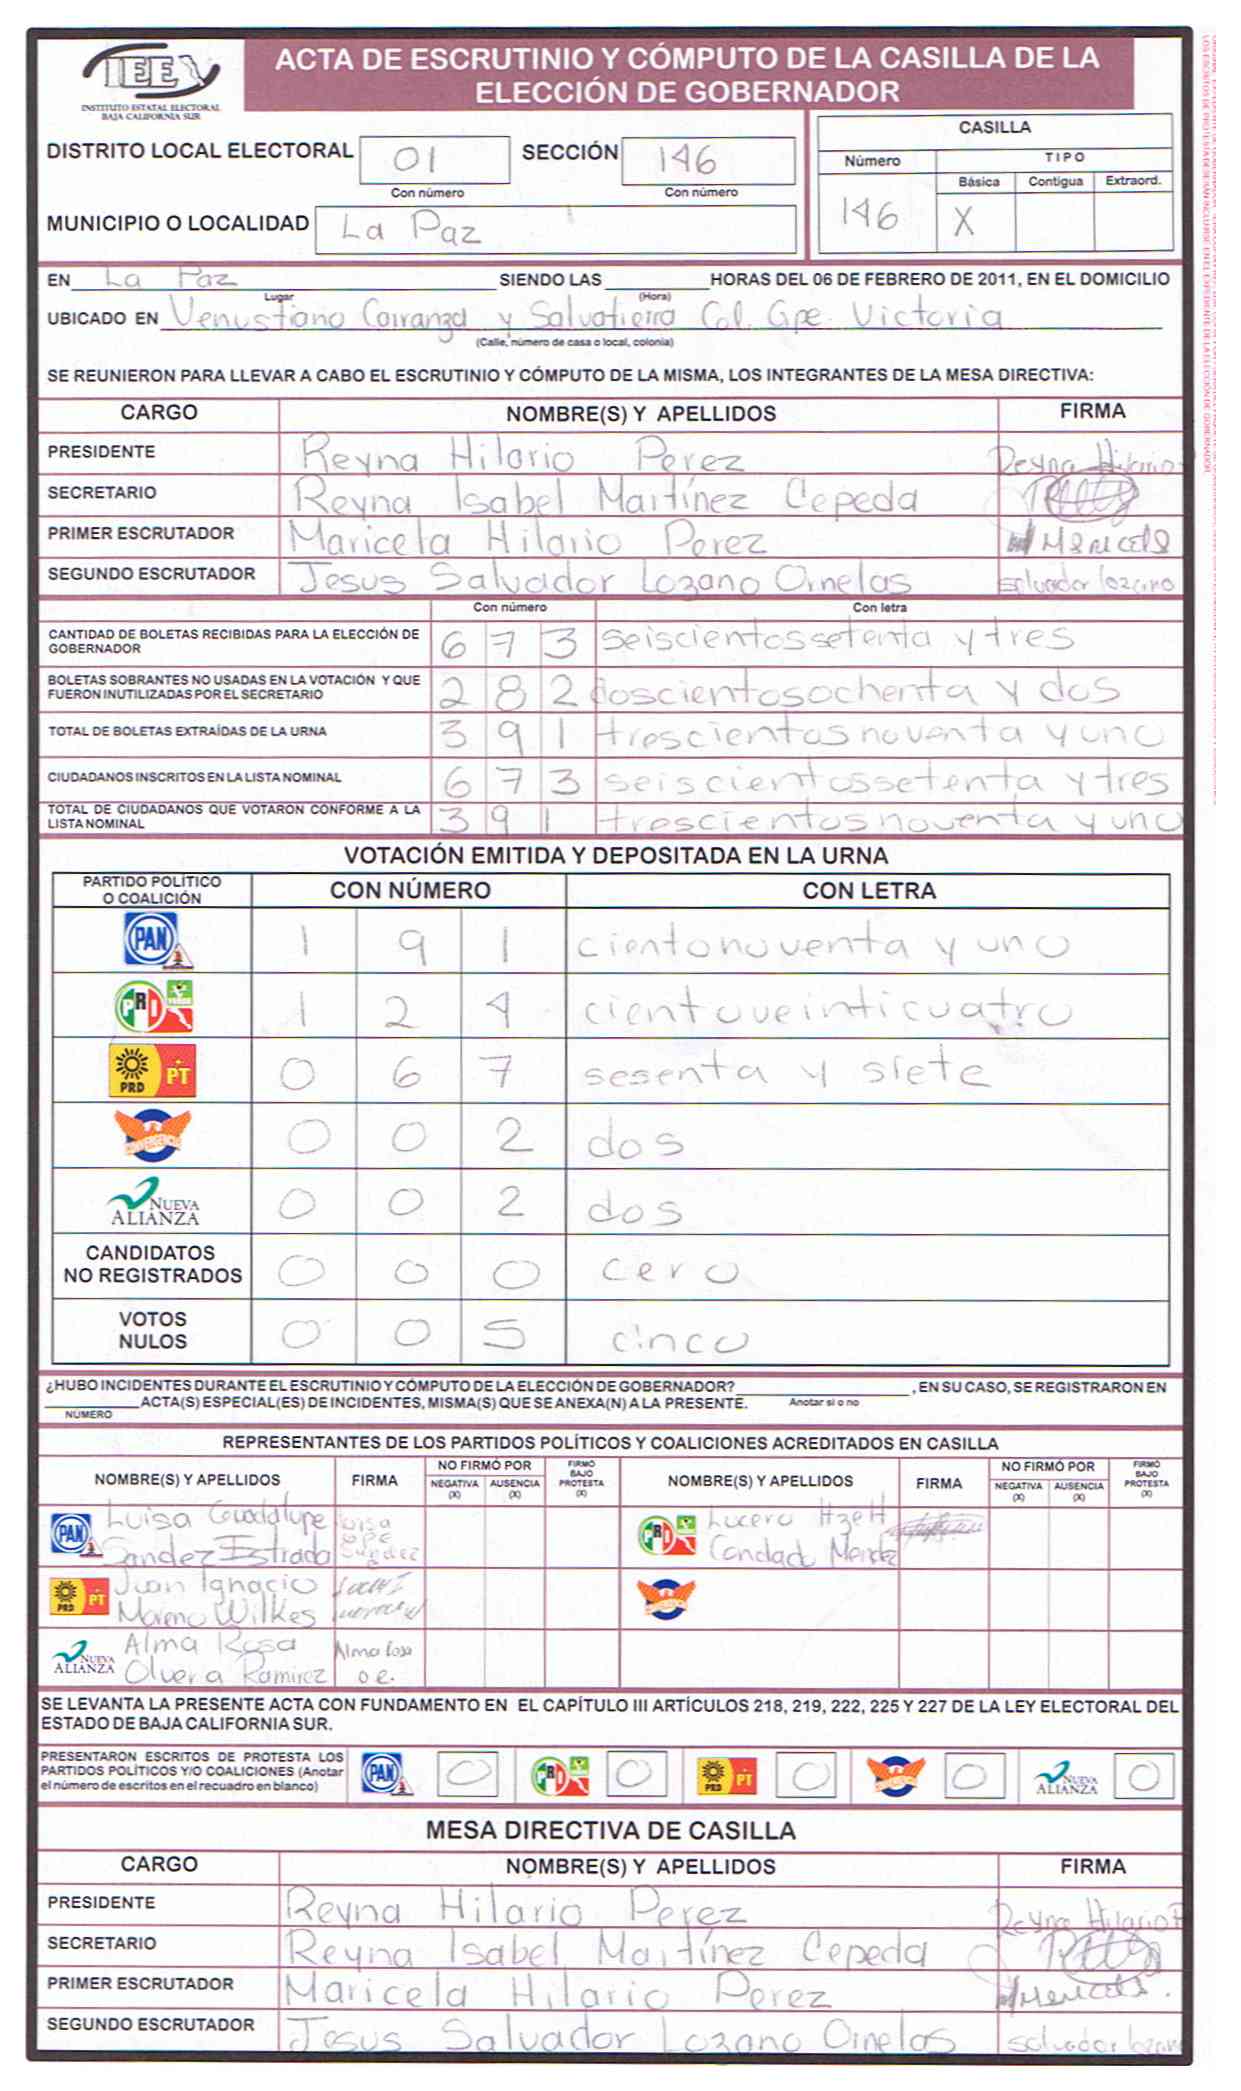 IEE
INSTITUTO ESTATAL ELECTORAL
BAJA CALIFORNIA SUR
ACTA DE ESCRUTINIO Y CÓMPUTO DE LA CASILLA DE LA
ELECCIÓN DE GOBERNADOR
DISTRITO LOCAL ELECTORAL 01 SECCIÓN 146
Con número Con número
MUNICIPIO O LOCALIDAD La Paz
CASILLA
Número TIPO
Básica Contigua Extraord.
146 X
EN La Paz SIENDO LAS HORAS DEL 06 DE FEBRERO DE 2011, EN EL DOMICILIO
Lugar (Hora)
UBICADO EN Venustiano Carranza y Salvatierra Col. Gpe. Victoria
(Calle, número de casa o local, colonia)
SE REUNIERON PARA LLEVAR A CABO EL ESCRUTINIO Y CÓMPUTO DE LA MISMA, LOS INTEGRANTES DE LA MESA DIRECTIVA:
CARGO NOMBRE(S) Y APELLIDOS FIRMA
PRESIDENTE Reyna Hilario Perez Reyna Hilario
SECRETARIO Reyna Isabel Martínez Cepeda
PRIMER ESCRUTADOR Maricela Hilario Perez
SEGUNDO ESCRUTADOR Jesus Salvador Lozano Ornelas salvador lozano
Con número Con letra
CANTIDAD DE BOLETAS RECIBIDAS PARA LA ELECCIÓN DE
GOBERNADOR 6 7 3 seiscientos setenta y tres
BOLETAS SOBRANTES NO USADAS EN LA VOTACIÓN Y QUE
FUERON INUTILIZADAS POR EL SECRETARIO 2 8 2 doscientos ochenta y dos
TOTAL DE BOLETAS EXTRAÍDAS DE LA URNA 3 9 1 trescientos noventa y uno
CIUDADANOS INSCRITOS EN LA LISTA NOMINAL 6 7 3 seiscientos setenta y tres
TOTAL DE CIUDADANOS QUE VOTARON CONFORME A LA
LISTA NOMINAL 3 9 1 trescientos noventa y uno
VOTACIÓN EMITIDA Y DEPOSITADA EN LA URNA
PARTIDO POLÍTICO
O COALICIÓN CON NÚMERO CON LETRA
PAN 1 9 1 ciento noventa y uno
PRI VERDE 1 2 4 ciento veinticuatro
PRD PT 0 6 7 sesenta y siete
CONVERGENCIA 0 0 2 dos
NUEVA
ALIANZA 0 0 2 dos
CANDIDATOS
NO REGISTRADOS 0 0 0 cero
VOTOS
NULOS 0 0 5 cinco
¿HUBO INCIDENTES DURANTE EL ESCRUTINIO Y CÓMPUTO DE LA ELECCIÓN DE GOBERNADOR? , EN SU CASO, SE REGISTRARON EN
ACTA(S) ESPECIAL(ES) DE INCIDENTES, MISMA(S) QUE SE ANEXA(N) A LA PRESENTE. Anotar si o no
NÚMERO
REPRESENTANTES DE LOS PARTIDOS POLÍTICOS Y COALICIONES ACREDITADOS EN CASILLA
NOMBRE(S) Y APELLIDOS FIRMA NO FIRMÓ POR NEGATIVA (X) AUSENCIA (X) FIRMÓ BAJO PROTESTA (X) NOMBRE(S) Y APELLIDOS FIRMA NO FIRMÓ POR NEGATIVA (X) AUSENCIA (X) FIRMÓ BAJO PROTESTA (X)
PAN Luisa Guadalupe
Sandez Estrada
PRI Lucero Itzel
Condado Mendez
PRD PT Juan Ignacio
Moreno Wilkes
NUEVA ALIANZA Alma Rosa
Olvera Ramirez Alma Rosa
O.R.
SE LEVANTA LA PRESENTE ACTA CON FUNDAMENTO EN EL CAPÍTULO III ARTÍCULOS 218, 219, 222, 225 Y 227 DE LA LEY ELECTORAL DEL
ESTADO DE BAJA CALIFORNIA SUR.
PRESENTARON ESCRITOS DE PROTESTA LOS
PARTIDOS POLÍTICOS Y/O COALICIONES (Anotar
el número de escritos en el recuadro en blanco)
PAN 0 PRI 0 PRD PT 0 0 NUEVA ALIANZA 0
MESA DIRECTIVA DE CASILLA
CARGO NOMBRE(S) Y APELLIDOS FIRMA
PRESIDENTE Reyna Hilario Perez Reyna Hilario P
SECRETARIO Reyna Isabel Martínez Cepeda
PRIMER ESCRUTADOR Maricela Hilario Perez
SEGUNDO ESCRUTADOR Jesus Salvador Lozano Ornelas salvador lozano